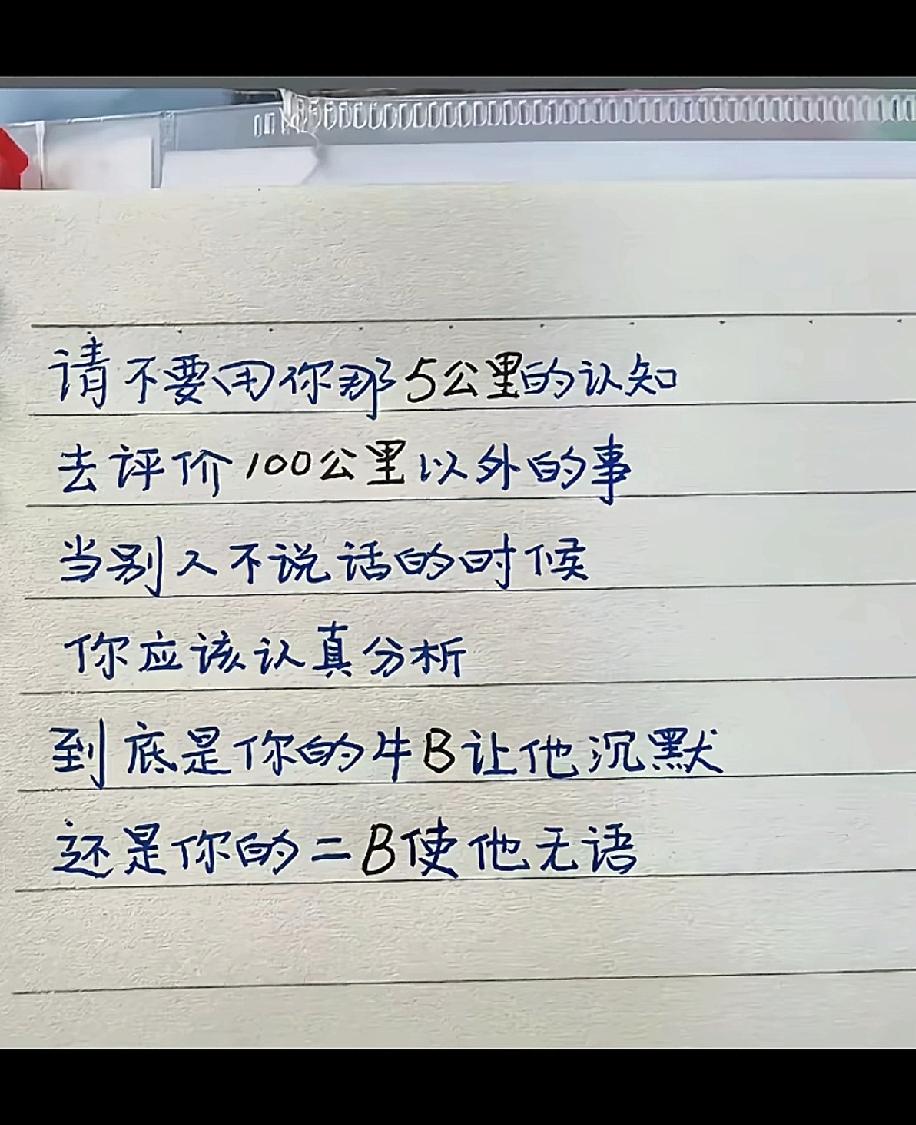 请不要用你那5公里的认知
去评价100公里以外的事
当别人不说话的时候
你应该认真分析
到底是你的牛B让他沉默
还是你的二B使他无语